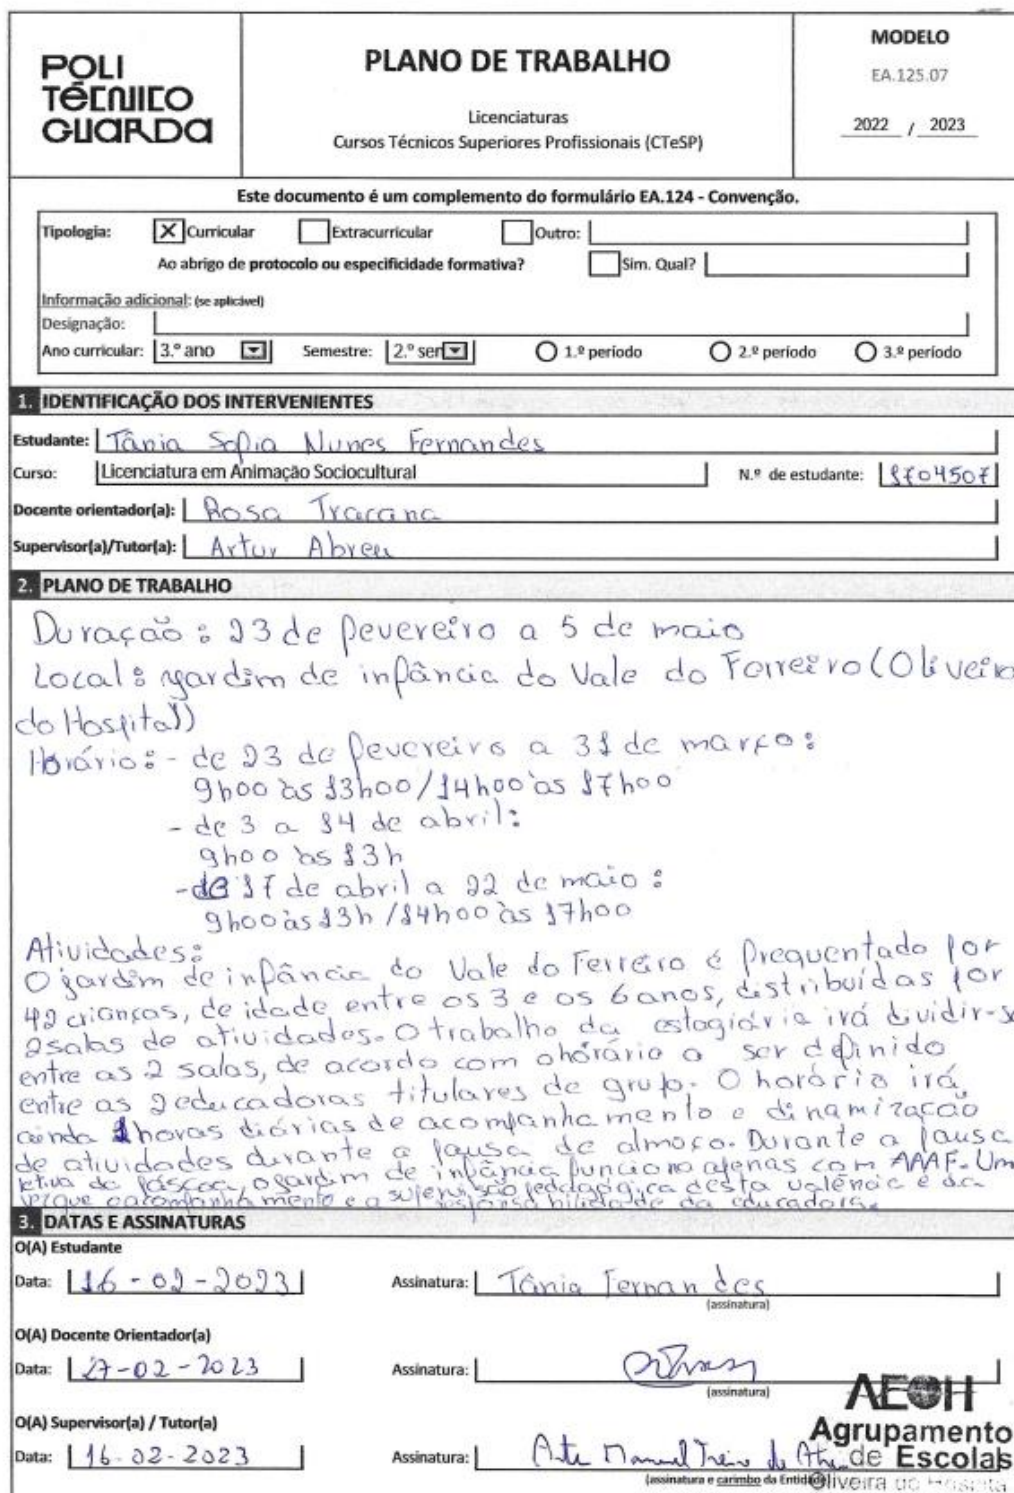 POLI
TÉCNICO
GUARDA
PLANO DE TRABALHO
Licenciaturas
Cursos Técnicos Superiores Profissionais (CTeSP)
MODELO
EA.125.07
2022 / 2023
Este documento é um complemento do formulário EA.124 - Convenção.
Tipologia: X Curricular Extracurricular Outro:
Ao abrigo de protocolo ou especificidade formativa? Sim. Qual?
Informação adicional: (se aplicável)
Designação:
Ano curricular: 3.º ano Semestre: 2.º ser 1.º período 2.º período 3.º período
1. IDENTIFICAÇÃO DOS INTERVENIENTES
Estudante: Tânia Sofia Nunes Fernandes
Curso: Licenciatura em Animação Sociocultural N.º de estudante: 1704507
Docente orientador(a): Rosa Tracana
Supervisor(a)/Tutor(a): Artur Abreu
2. PLANO DE TRABALHO
Duração: 23 de fevereiro a 5 de maio
Local: jardim de infância do Vale do Ferreiro (Oliveira
do Hospital)
Horário: - de 23 de fevereiro a 31 de março:
9h00 às 13h00/14h00 às 17h00
- de 3 a 14 de abril:
9h00 às 13h
- de 17 de abril a 22 de maio:
9h00 às 13h /14h00 às 17h00
Atividades:
O jardim de infância do Vale do Ferreiro é frequentado por
42 crianças, de idade entre os 3 e os 6 anos, distribuídas por
2 salas de atividades. O trabalho da estagiária irá dividir-se
entre as 2 salas, de acordo com o horário a ser definido
entre as 2 educadoras titulares de grupo. O horário irá
ainda 1 horas diárias de acompanhamento e dinamização
de atividades durante a pausa de almoço. Durante a pausa
letiva da páscoa, o jardim de infância funciona apenas com AAAF. Um
vez que o acompanhamento e a supervisão pedagógica desta valência é da
responsabilidade da educadora.
3. DATAS E ASSINATURAS
O(A) Estudante
Data: 16-02-2023 Assinatura: Tânia Fernandes
(assinatura)
O(A) Docente Orientador(a)
Data: 27-02-2023 Assinatura:
(assinatura)
O(A) Supervisor(a) / Tutor(a)
Data: 16-02-2023 Assinatura:
(assinatura e carimbo da Entidade)
AEOH
Agrupamento
de Escolas
Oliveira do Hospital